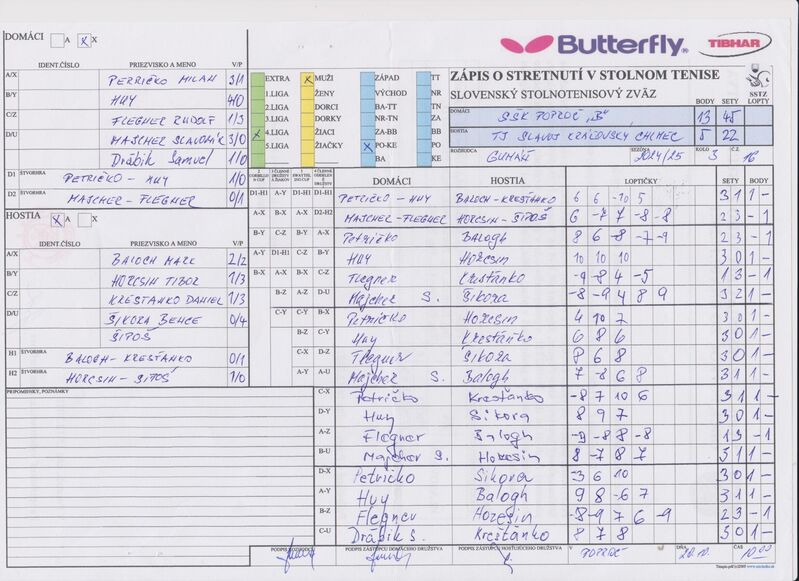 DOMÁCI A x X
IDENT.ČÍSLO PRIEZVISKO A MENO V/P
A/X PETRIČKO MILAN 3/1
B/Y HUY 4/0
C/Z FLEGNER RUDOLF 1/3
D/U MAJCHER SLAVOMÍR 3/0
Drábik Samuel 1/0
D1 ŠTVORHRA PETRIČKO - HUY 1/0
D2 ŠTVORHRA MAJCHER - FLEGNER 0/1
HOSTIA x A X
IDENT.ČÍSLO PRIEZVISKO A MENO V/P
A/X BALOGH MARK 2/2
B/Y HORCSIN TIBOR 1/3
C/Z KREŠŤANKO DANIEL 1/3
D/U ŠIKORA BENCE 0/4
ŠIPOŠ
H1 ŠTVORHRA BALOGH - KREŠŤANKO 0/1
H2 ŠTVORHRA HORCSIN - ŠIPOŠ 1/0
PRIPOMIENKY, POZNÁMKY
EXTRA x MUŽI ZÁPAD TT
1.LIGA ŽENY VÝCHOD NR
2.LIGA DORCI BA-TT TN
3.LIGA DORKY NR-TN ZA
x 4.LIGA ŽIACI ZA-BB BB
5.LIGA ŽIAČKY x PO-KE PO
BA KE
Butterfly
TIBHAR
ZÁPIS O STRETNUTÍ V STOLNOM TENISE
SLOVENSKÝ STOLNOTENISOVÝ ZVÄZ SSTZ
BODY SETY LOPTY
DOMÁCI SŠK POPROČ „B" 13 45
HOSTIA TJ SLAVOJ KRÁĽOVSKÝ CHLMEC 5 22
ROZHODCA SEZÓNA 2024/25 KOLO 3 Č.Z. 16
DOMÁCI HOSTIA LOPTIČKY SETY BODY
D1-H1 A-Y D1-H1 D1-H1 PETRIČKO - HUY BALOGH - KREŠŤANKO 6 6 -10 5 3 1 1 -
A-X B-X A-X D2-H2 MAJCHER - FLEGNER HORCSIN - ŠIPOŠ 6 -7 7 -8 -8 2 3 - 1
B-Y C-Z B-Y A-X Petričko Balogh 8 6 -8 -7 -9 2 3 - 1
A-Y D1-H1 C-Z B-Y Huy Horcsin 10 10 10 3 0 1 -
B-X A-X B-X C-Z Flegner Krešťanko -9 -8 4 -5 1 3 - 1
B-Z A-Z D-U Majcher S. Šikora -8 -9 4 8 9 3 2 1 -
C-Y C-Y B-X Petričko Horcsin 4 10 7 3 0 1 -
B-Z C-Y Huy Krešťanko 6 8 6 3 0 1 -
C-X D-Z Flegner Šikora 8 6 8 3 0 1 -
A-Y A-U Majcher S. Balogh 7 -8 6 8 3 1 1 -
C-X Petričko Krešťanko -8 7 10 6 3 1 1 -
D-Y Huy Šikora 8 9 7 3 0 1 -
A-Z Flegner Balogh -9 -8 8 -8 1 3 - 1
B-U Majcher S. Horcsin 8 -7 8 7 3 1 1 -
D-X Petričko Šikora 3 6 10 3 0 1 -
A-Y Huy Balogh 9 8 -6 7 3 1 1 -
B-Z Flegner Horcsin -8 -9 7 6 -9 2 3 - 1
C-U Drábik S. Krešťanko 8 7 8 3 0 1 -
PODPIS ROZHODCU PODPIS ZÁSTUPCU DOMÁCEHO DRUŽSTVA PODPIS ZÁSTUPCU HOSŤUJÚCEHO DRUŽSTVA V POPROČ DŇA 20.10. ČAS 10.00